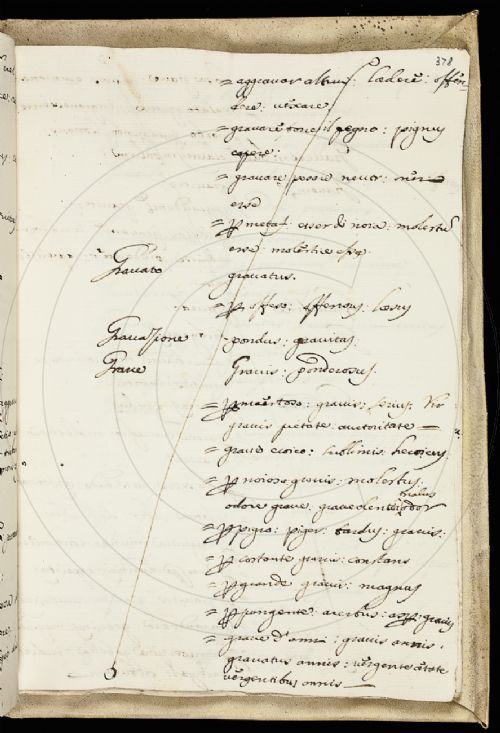 378
= aggravar altrui: lædere: offen
dere: vexare
= gravare torre il pegno: pignus
capere
= gravare
esse
= p metaf. esser di noia: molestũ
esse molestiæ esse
Gravato gravatus.
= p offeso: offensus: læsus
Gravazione pondus: gravitas.
Grave Gravis: ponderosus.
= p maestoso: gravis: Vir
gravis pietate auctoritate
= grave eroico: sublimis: heroicus
= p noioso gravis: molestus
malus
odore grave: graveolentia: odor
= p pigro: piger: tardus: gravis:
= p costante gravis: constans
= p grande gravis: magnus
= p pungente: acerbus: gravis
= grave d'anni: gravis annis.
gravatus annis: vergente ætate
vergentibus annis